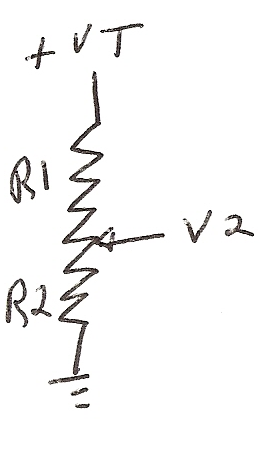 +VT
R1
V2
R2